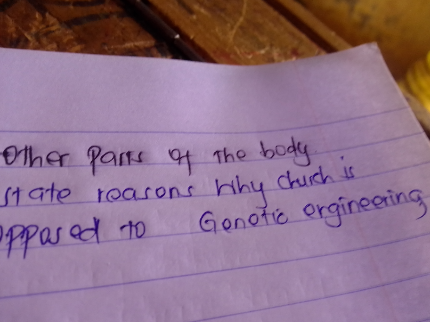 Other parts of the body
state reasons why church is
opposed to Genetic engineering